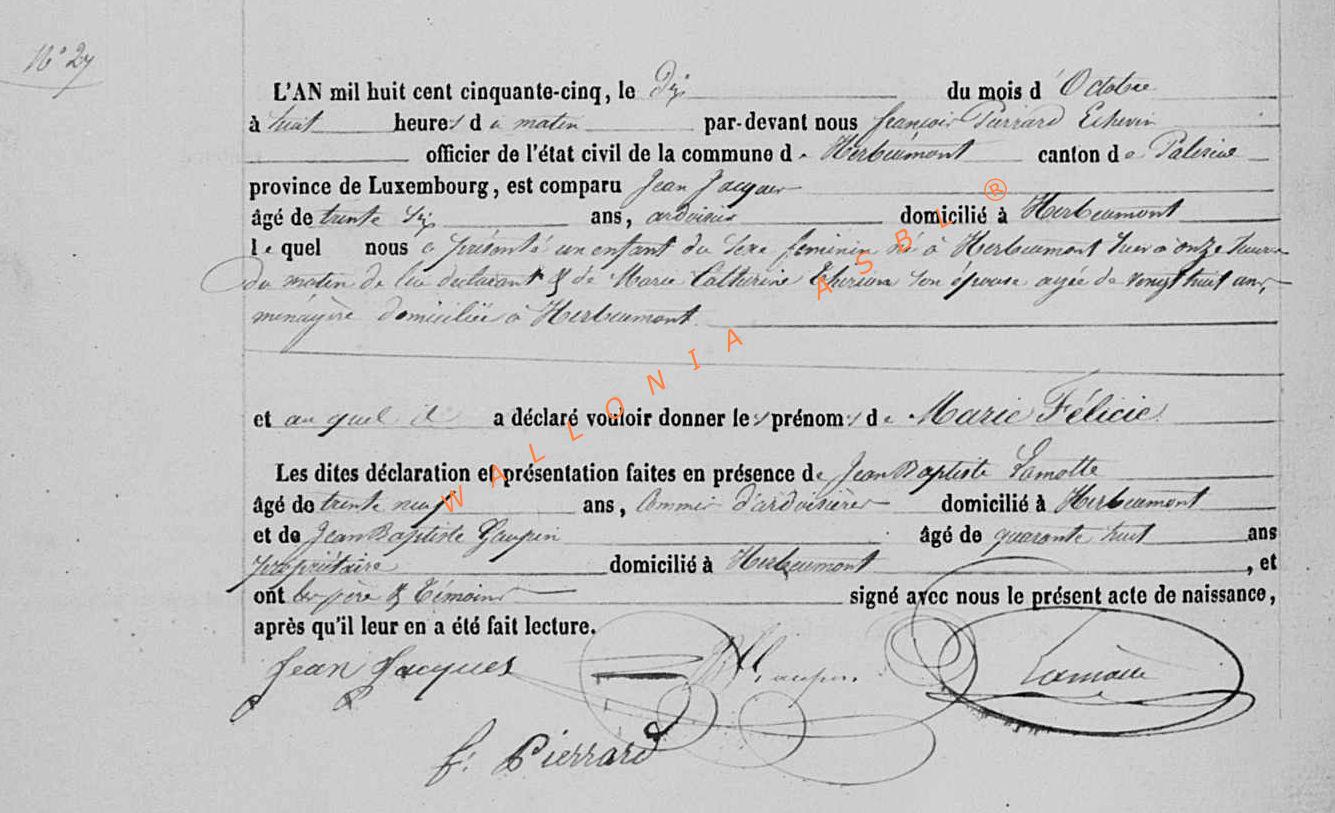 N° 27
L'AN mil huit cent cinquante-cinq, le Dix du mois d'Octobre
à huit heures du matin par-devant nous françois Pierrard Echevin
officier de l'état civil de la commune de Herbeumont canton de Paliseul
province de Luxembourg, est comparu Jean Jacques
âgé de trente six ans, ardoisier domicilié à Herbeumont
lequel nous a présenté un enfant du sexe feminin né à Herbeumont hier à onze heures
du matin de lui déclarant & de Marie Catherine son épouse agée de vengt huit ans,
ménagère domiciliée à Herbeumont
et auquel il a déclaré vouloir donner les prénoms de Marie Félicie.
Les dites déclaration et présentation faites en présence de Jean Baptiste Lamotte
âgé de trente neuf ans, Commis d'ardoisières domicilié à Herbeumont
et de Jean Baptiste Gaupin âgé de quarante huit ans
propriétaire domicilié à Herbeumont, et
ont les père & témoins signé avec nous le présent acte de naissance,
après qu'il leur en a été fait lecture.
Jean Jacques
Lamotte
f. Pierrard
WALLONIA ASBL ®